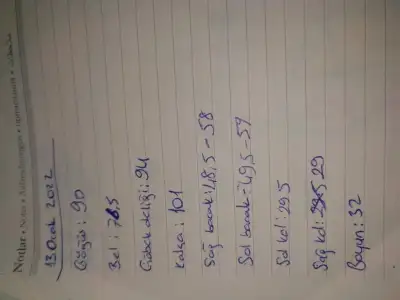 Notlar • Notes • Aufzeichnungen •
13 Ocak 2022
Göğüs : 90
Bel : 78,5
Göbek deliği : 94
Kalça : 101
Sağ bacak : 48,5 - 58
Sol bacak - 49,5 - 59
Sol kol : 29.5
Sağ kol : 29
Boyun : 32